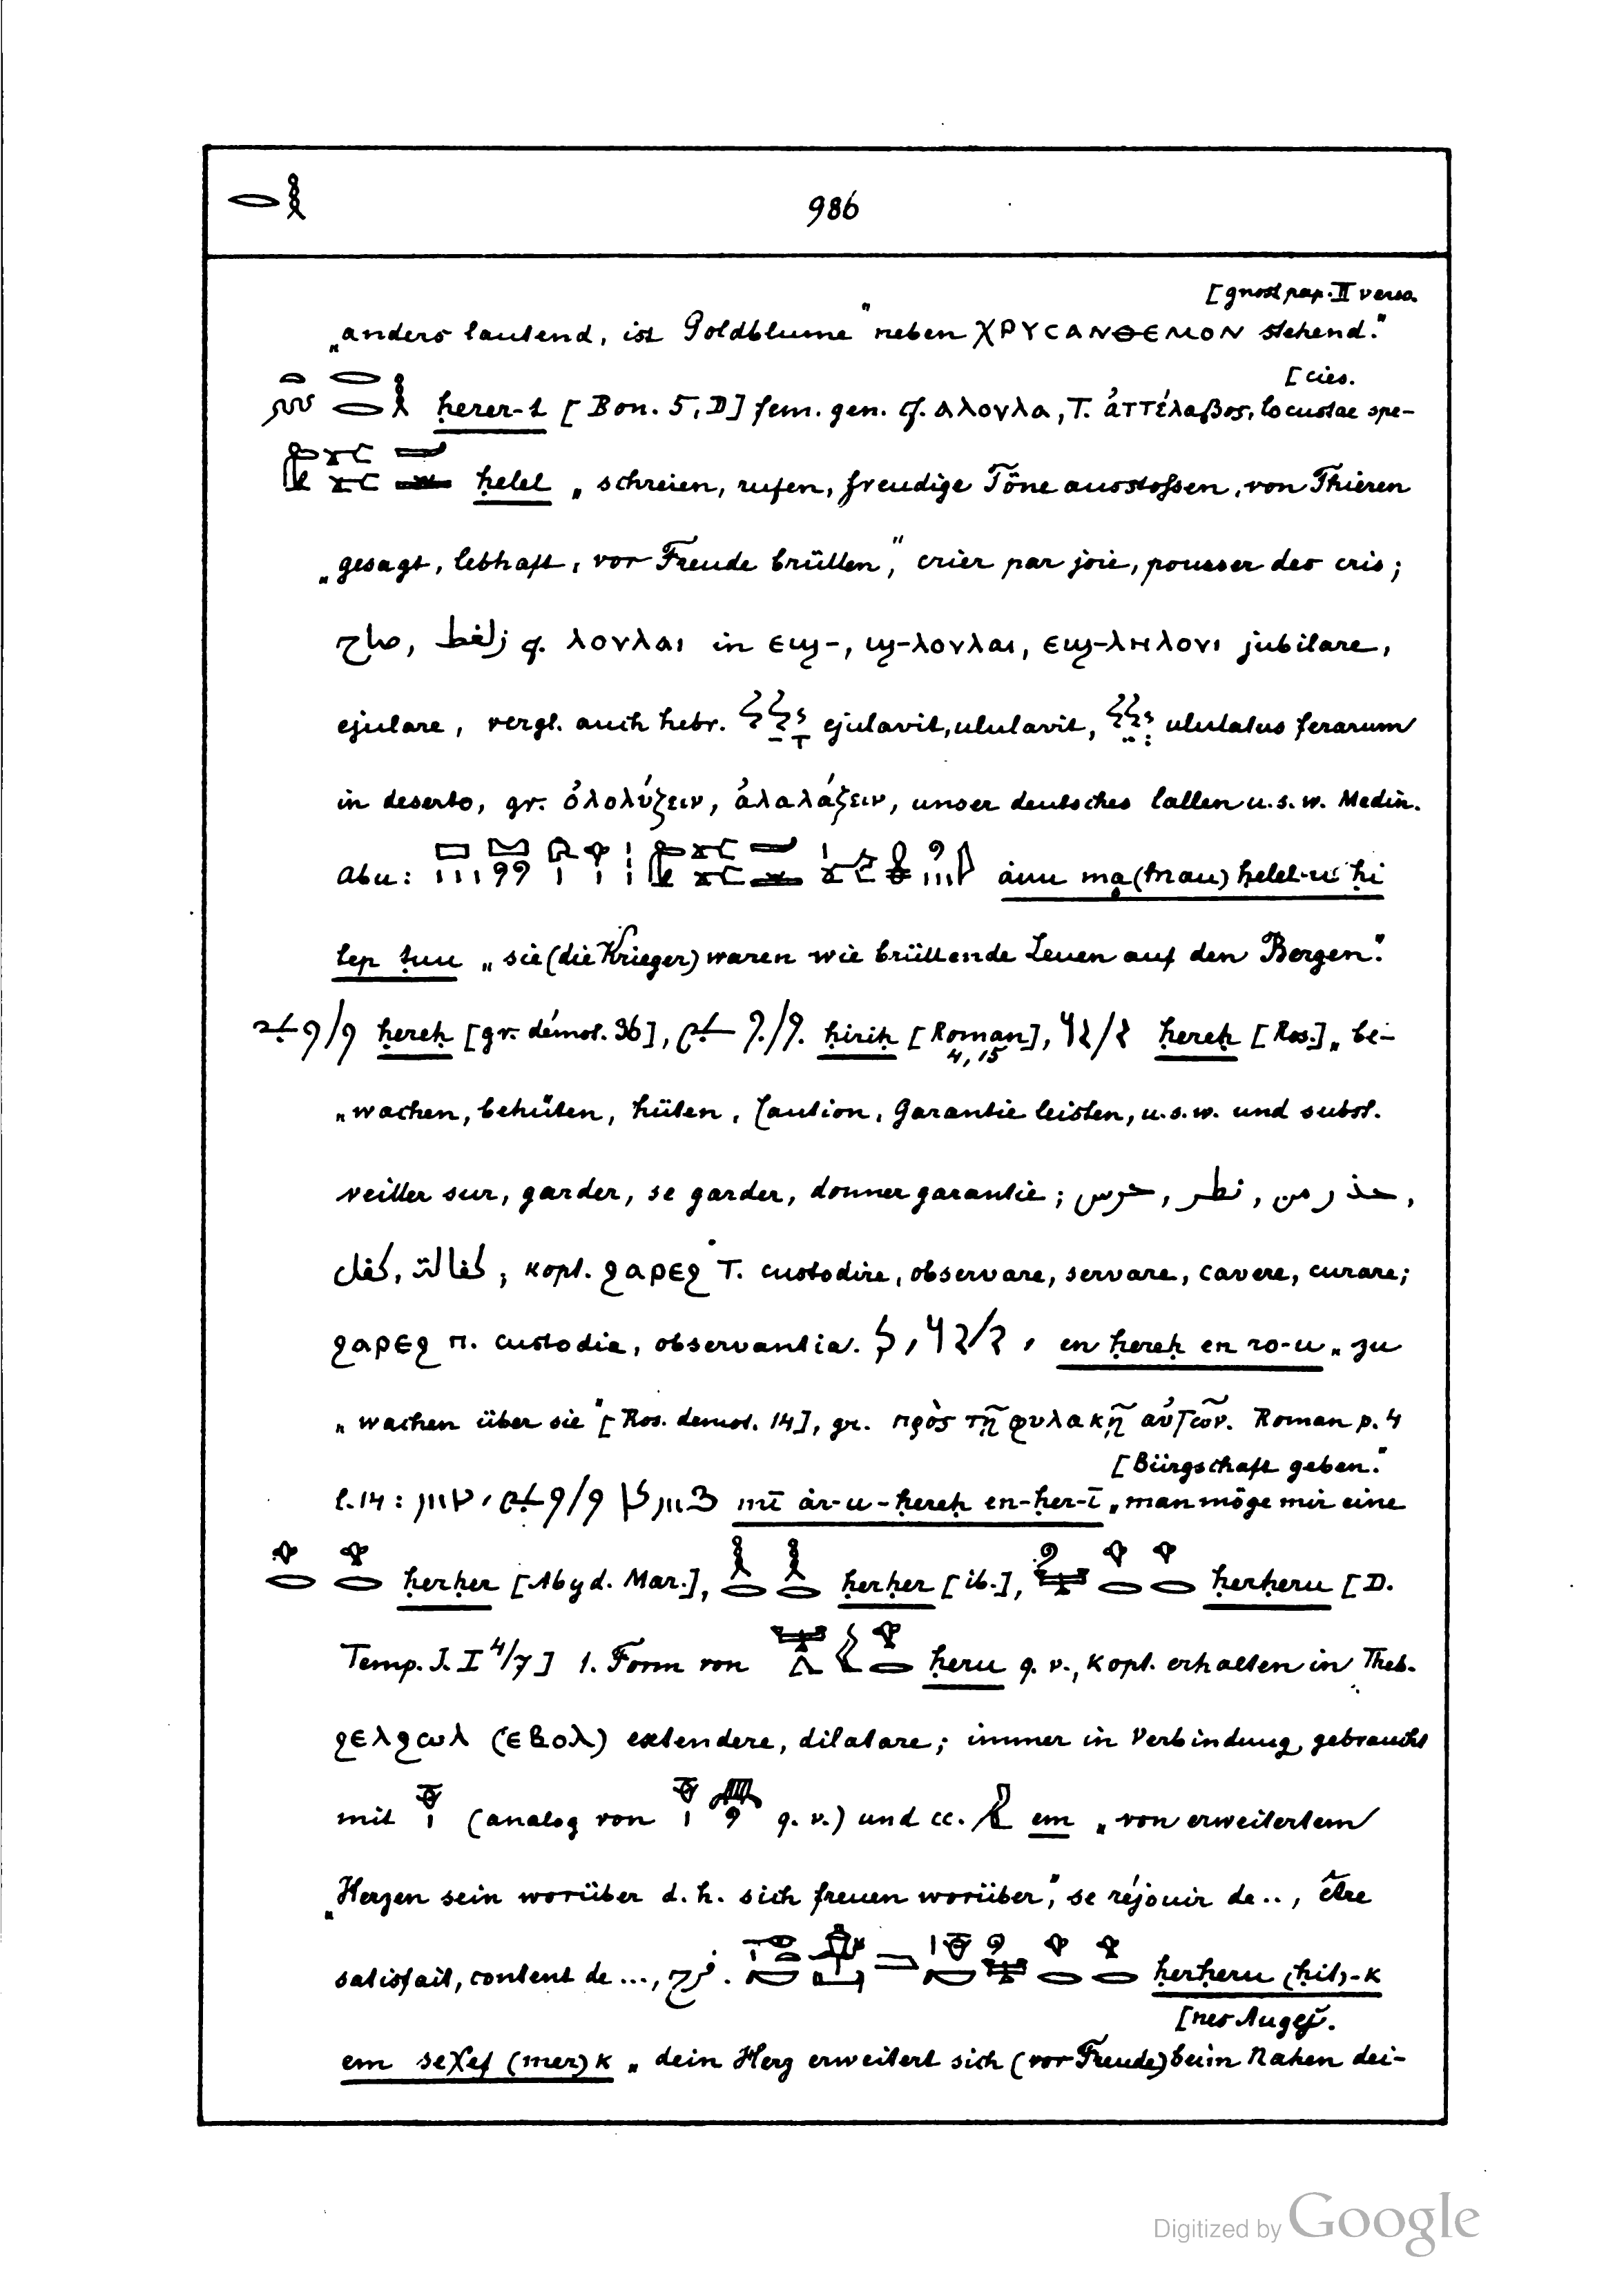 986
[gnost pap. II verso.
„anders lautend, ist Goldblume" neben ΧΡΥСΑΝΘΕΜΟΝ stehend."
[cies.
ḥerer-t [Bon. 5, D] fem. gen. cf. ⲁⲗⲟⲩⲗⲁ, T. ἀττέλαβος, locustae spe-
ḥelel „schreien, rufen, freudige Töne ausstoßen, von Thieren
„gesagt, lebhaft, vor Freude brüllen", crier par joie, pousser des cris;
صاح, زلغط cf. ⲗⲟⲩⲗⲁⲓ in ⲉϣ-, ϣ-ⲗⲟⲩⲗⲁⲓ, ⲉϣ-ⲗⲏⲗⲟⲩⲓ jubilare,
ejulare, vergl. auch hebr. ejulavit, ululavit, ululatus ferarum
in deserto, gr. ὀλολύζειν, ἀλαλάζειν, unser deutsches lallen u.s.w. Medin.
Abu: ȧuu ma (mau) ḥelel-u ḥi
tep ṭuu „sie (die Krieger) waren wie brüllende Leuen auf den Bergen."
ḥereḥ [gr. démot. 36], ḥiriḥ [Roman 4, 15], ḥereḥ [Ros.] „be-
„wachen, behüten, hüten, Caution, Garantie leisten, u.s.w. und subst.
veiller sur, garder, se garder, donner garantie; حرس, نطر, حذر من,
كفل, كفالة; kopt. ϩⲁⲣⲉϩ T. custodire, observare, servare, cavere, curare;
ϩⲁⲣⲉϩ ⲡ. custodia, observantia. en ḥereḥ en ro-u „zu
„wachen über sie" [Ros. demot. 14], gr. πρὸς τῇ φυλακῇ αὐτῶν. Roman p. 4
[Bürgschaft geben."
l. 14: mī ȧr-u-ḥereḥ en-ḥer-ī „man möge mir eine
ḥerḥer [Abyd. Mar.], ḥerḥer [ib.], ḥerḥeru [D.
Temp. J. I 4/7] 1. Form von ḥeru q. v., kopt. erhalten in Theb.
ϩⲉⲗϩⲱⲗ (ⲉⲃⲟⲗ) extendere, dilatare; immer in Verbindung gebraucht
mit (analog von q. v.) und cc. em „von erweitertem
„Herzen sein worüber d. h. sich freuen worüber", se réjouir de.., être
satisfait, content de ..., فرح. ḥerḥeru (ḥit)-k
[nes Auges."
em seχef (mer) k „dein Herz erweitert sich (vor Freude) beim Nahen dei-
Digitized by Google